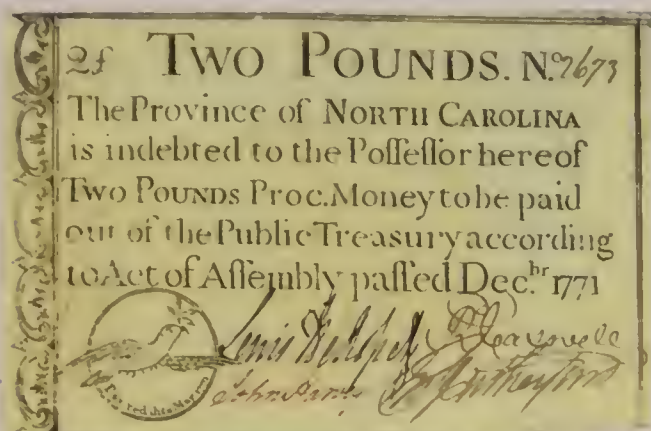 2£ TWO POUNDS. N.º 7673
The Province of NORTH CAROLINA
is indebted to the Poſſeſſor hereof
TWO POUNDS Proc. Money to be paid
out of the Public Treasury according
to Act of Aſſembly paſſed Dec.br 1771
Lewis
John Rutherfurd